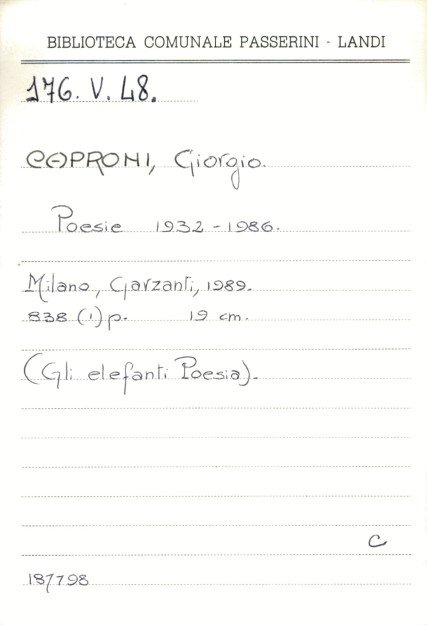 BIBLIOTECA COMUNALE PASSERINI - LANDI
176. V. 48.
CAPRONI, Giorgio.
Poesie 1932-1986.
Milano, Garzanti, 1989.
838 (1) p. 19 cm.
(Gli elefanti Poesia).
C
187798